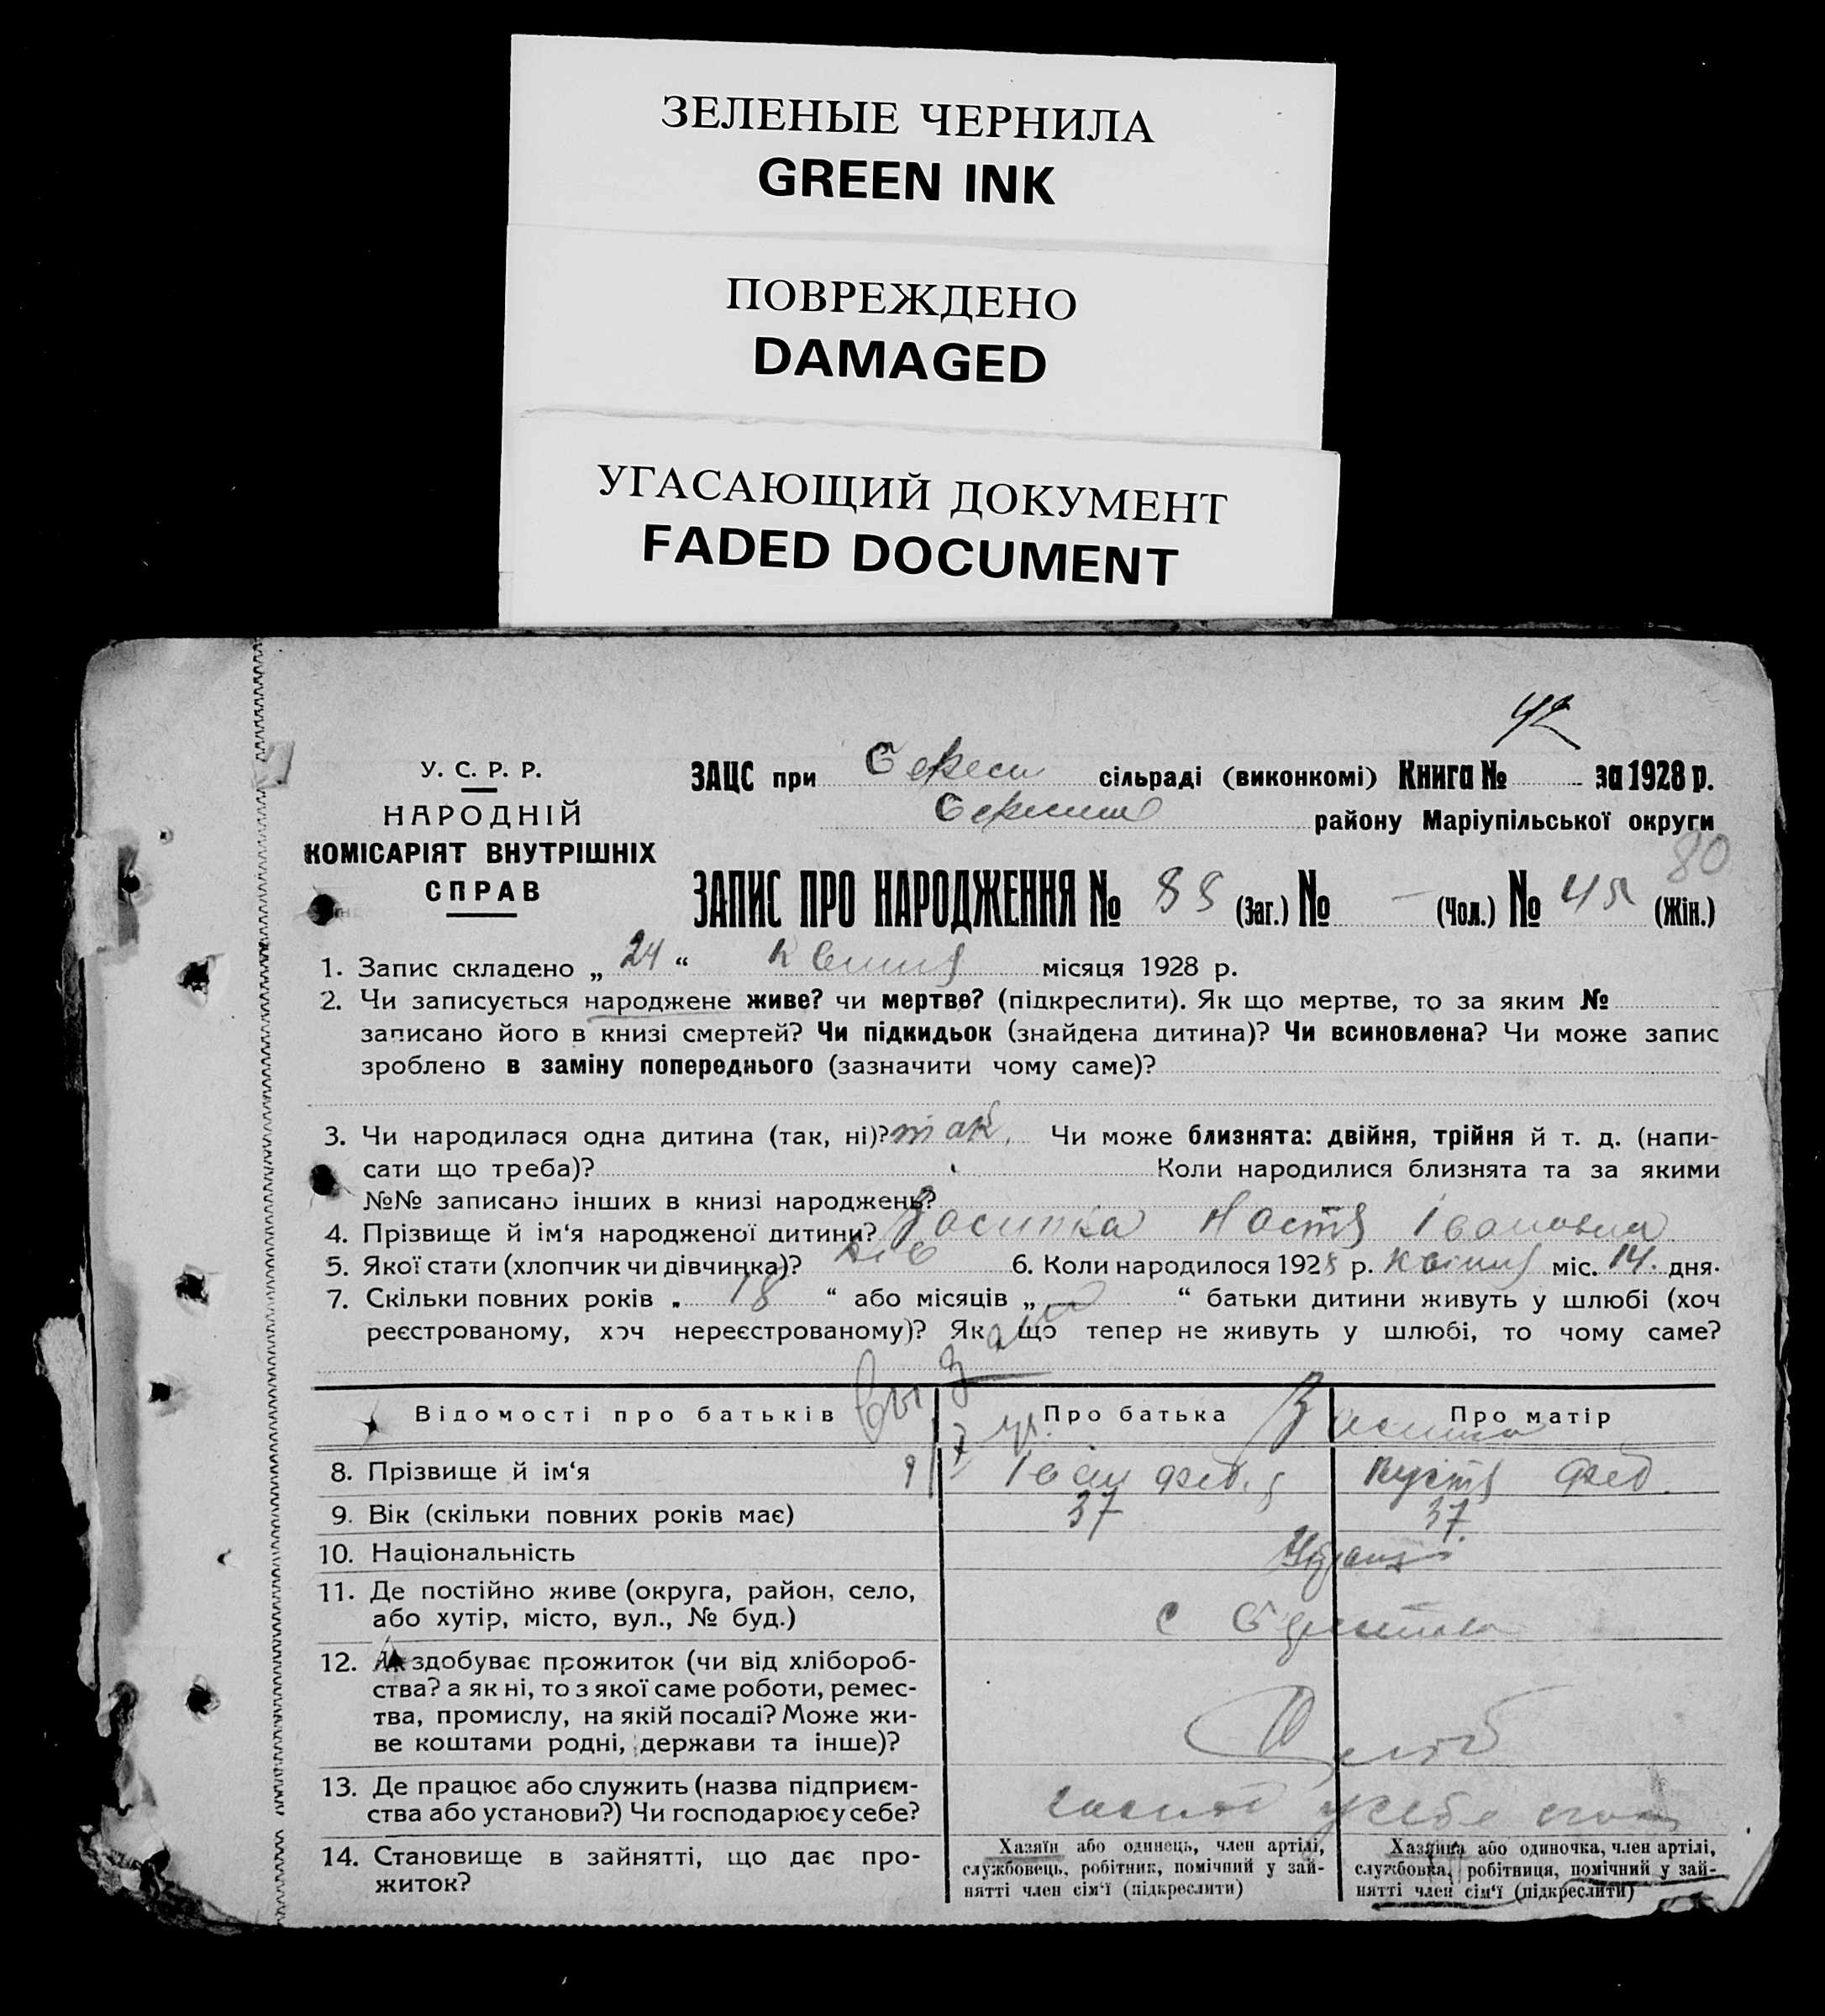 ЗЕЛЕНЫЕ ЧЕРНИЛА
GREEN INK
ПОВРЕЖДЕНО
DAMAGED
УГАСАЮЩИЙ ДОКУМЕНТ
FADED DOCUMENT
У. С. Р. Р.
НАРОДНІЙ
КОМІСАРІЯТ ВНУТРІШНІХ
СПРАВ
42
ЗАЦС при сільраді (виконкомі) Книга № за 1928 р.
району Маріупільської округи
80
ЗАПИС ПРО НАРОДЖЕННЯ № 88 (Заг.) № — (Чол.) № 45 (Жін.)
1. Запис складено „ 24 “ місяця 1928 р.
2. Чи записується народжене живе? чи мертве? (підкреслити). Як що мертве, то за яким №
записано його в книзі смертей? Чи підкидьок (знайдена дитина)? Чи всиновлена? Чи може запис
зроблено в заміну попереднього (зазначити чому саме)?
3. Чи народилася одна дитина (так, ні)? так. Чи може близнята: двійня, трійня й т. д. (напи-
сати що треба)? Коли народилися близнята та за якими
№№ записано інших в книзі народжень?
4. Прізвище й ім‘я народженої дитини? Засипка Настя Івановна
5. Якої стати (хлопчик чи дівчинка)? дів 6. Коли народилося 1928 р. міс. 14. дня.
7. Скільки повних років „ 18 “ або місяців „ “ батьки дитини живуть у шлюбі (хоч
реєстрованому, хоч нереєстрованому)? Як що тепер не живуть у шлюбі, то чому саме?
Відомості про батьків Про батька Про матір
8. Прізвище й ім‘я Іван Фед.
9. Вік (скільки повних років має) 37 37.
10. Національність
11. Де постійно живе (округа, район, село,
або хутір, місто, вул., № буд.) с
12. Як здобуває прожиток (чи від хлібороб-
ства? а як ні, то з якої саме роботи, ремес-
тва, промислу, на якій посаді? Може жи-
ве коштами родні, держави та інше)?
13. Де працює або служить (назва підприєм-
ства або установи?) Чи господарює у себе?
14. Становище в зайнятті, що дає про-
житок?
Хазяїн або одинець, член артілі,
службовець, робітник, помічний у зай-
нятті член сім‘ї (підкреслити)
Хазяйка або одиночка, член артілі,
службовка, робітниця, помічний у зай-
нятті член сім‘ї (підкреслити)